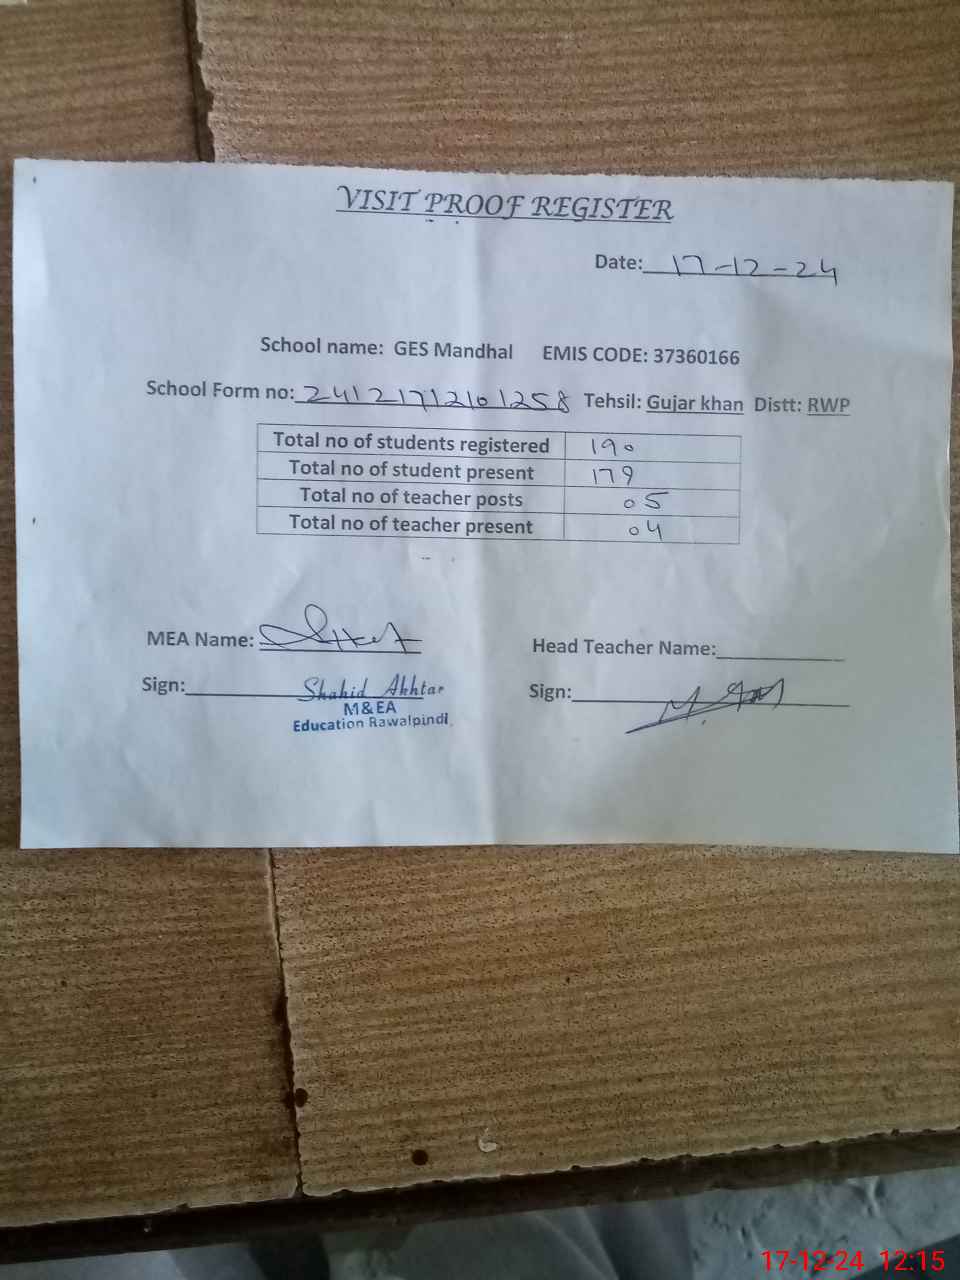 VISIT PROOF REGISTER
Date: 17-12-24
School name: GES Mandhal EMIS CODE: 37360166
School Form no: 24121712101258 Tehsil: Gujar khan Distt: RWP
Total no of students registered 190
Total no of student present 179
Total no of teacher posts 05
Total no of teacher present 04
MEA Name:
Head Teacher Name:
Sign: Shahid Akhtar
M&EA
Education Rawalpindi.
Sign:
17-12-24 12:15